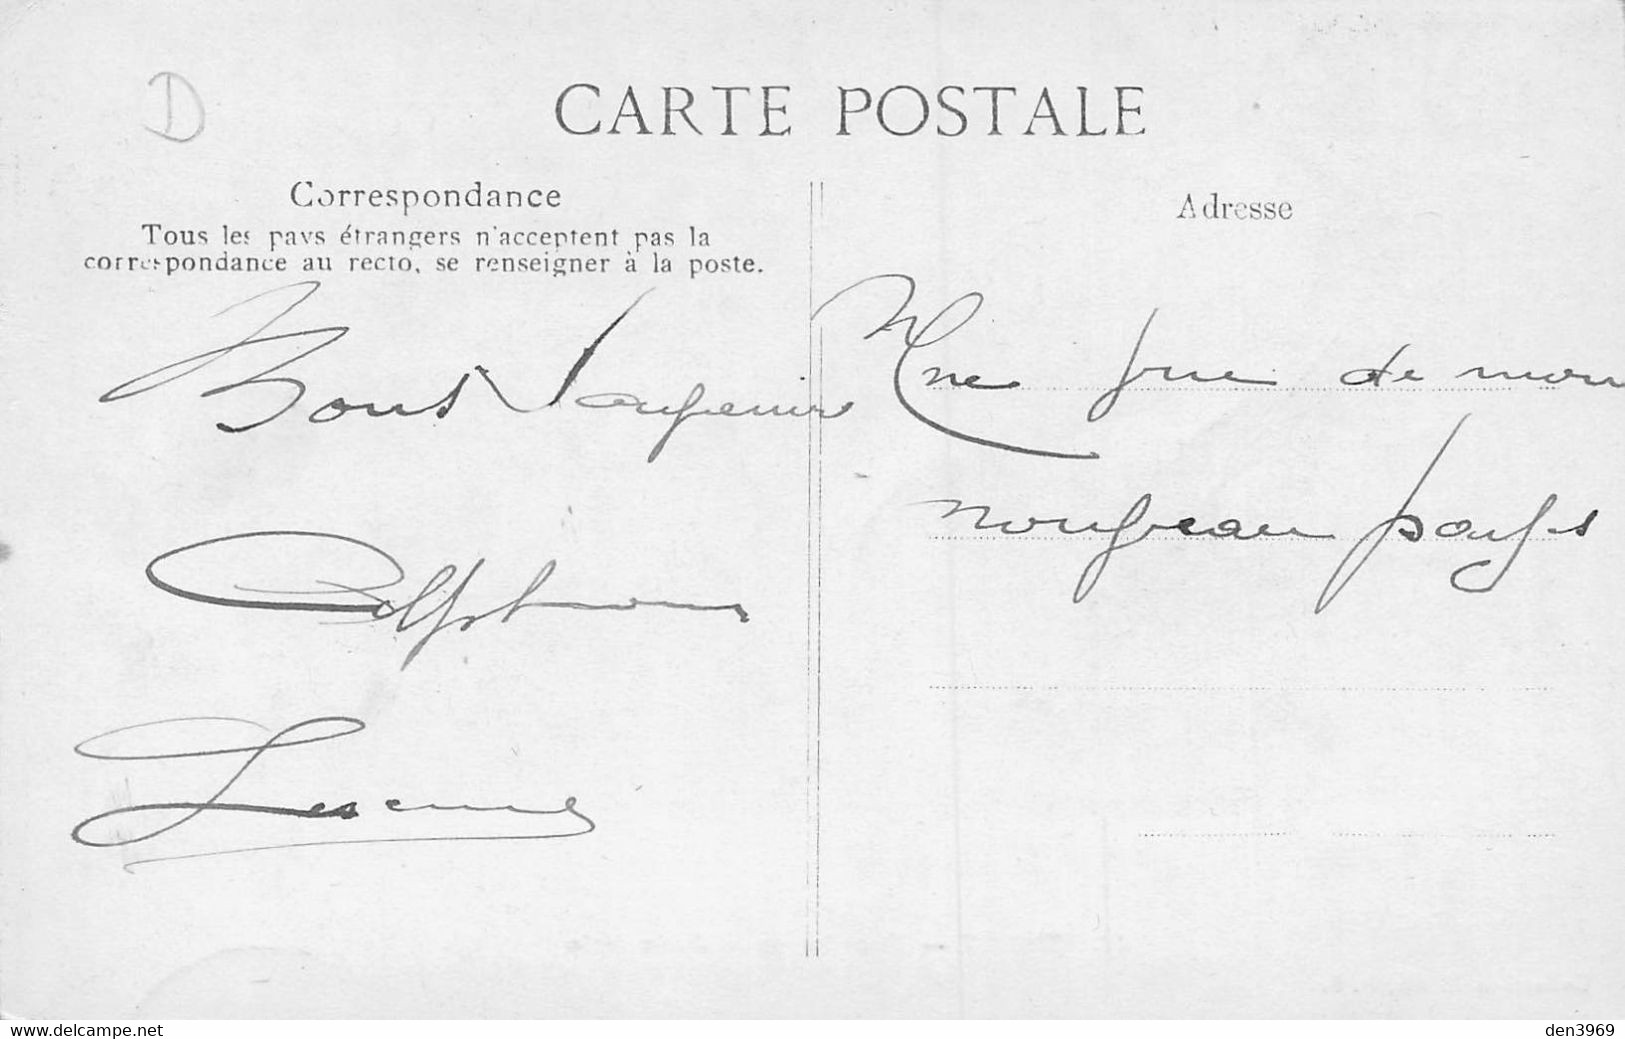 D
CARTE POSTALE
Correspondance
Tous les pays étrangers n'acceptent pas la
correspondance au recto, se renseigner à la poste.
Bons Souvenirs
Alphonse
Adresse
Une Vue de mon
nouveau pays
www.delcampe.net
den3969